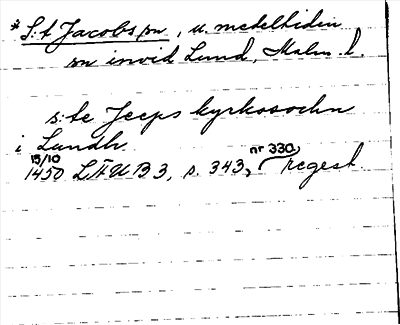 * S:t Jacobs sn, u. medeltiden
sn invid Lund, Malm. l.
s:te Jeeps kyrkosochn
i Lundh
15/10
1450 LÄUB 3, s. 343, nr 330, regest.